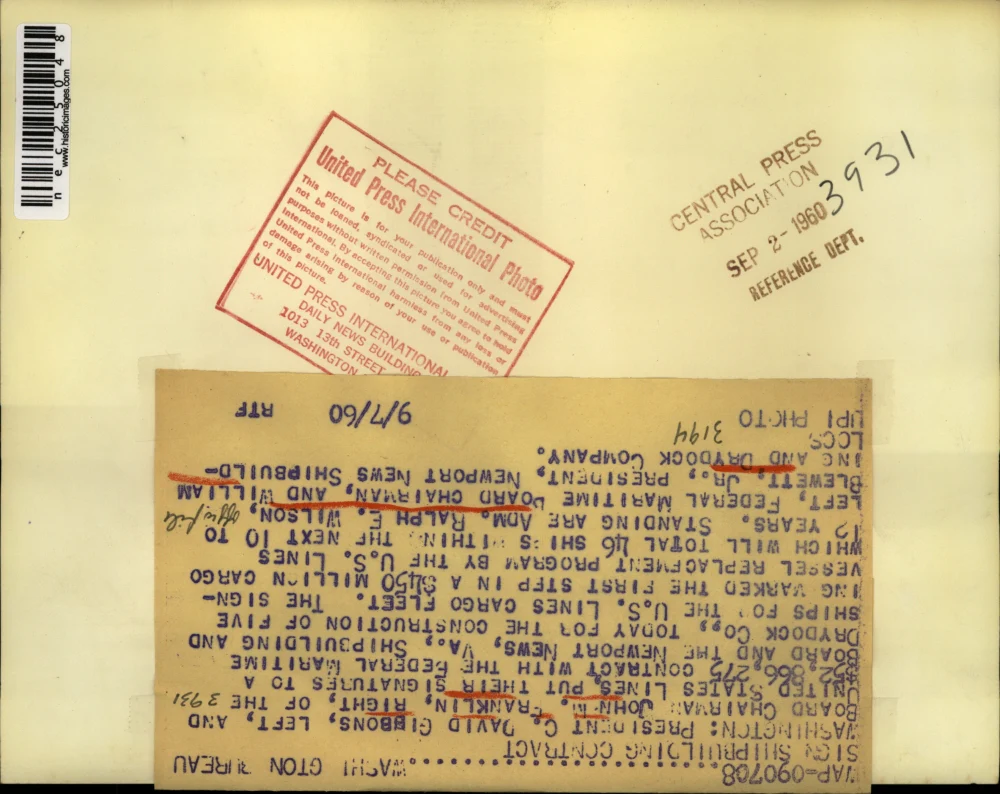 n e c 2 5 0 4 8
www.historicimages.com
PLEASE CREDIT
United Press International Photo
This picture is for your publication only and must
not be loaned, syndicated or used for advertising
purposes without written permission from United Press
International. By accepting this picture you agree to hold
United Press International harmless from any loss or
damage arising by reason of your use or publication
of this picture.
UNITED PRESS INTERNATIONAL
DAILY NEWS BUILDING
1013 13th STREET
WASHINGTON
CENTRAL PRESS
ASSOCIATION
SEP 2 - 1960
REFERENCE DEPT.
3931
WAP-090708 WASHI GTON BUREAU
SIGN SHIPBUILDING CONTRACT
WASHINGTON: PRESIDENT C. DAVID GIBBONS, LEFT, AND
BOARD CHAIRMAN JOHN M. FRANKLIN, RIGHT, OF THE 3931
UNITED STATES LINES, PUT THEIR SIGNATURES TO A
$52,866,275 CONTRACT WITH THE FEDERAL MARITIME
BOARD AND THE NEWPORT NEWS, VA., SHIPBUILDING AND
DRYDOCK CO., TODAY FOR THE CONSTRUCTION OF FIVE
SHIPS FOR THE U.S. LINES CARGO FLEET. THE SIGN-
ING MARKED THE FIRST STEP IN A $450 MILLION CARGO
VESSEL REPLACEMENT PROGRAM BY THE U.S. LINES
WHICH WILL TOTAL 46 SHIPS WITHIN THE NEXT 10 TO
12 YEARS. STANDING ARE ADM. RALPH E. WILSON,
LEFT, FEDERAL MARITIME BOARD CHAIRMAN, AND WILLIAM
BLEWETT, JR., PRESIDENT, NEWPORT NEWS SHIPBUILD-
ING AND DRYDOCK COMPANY.
LCCS 3194
UPI PHOTO 9/7/60 RTF